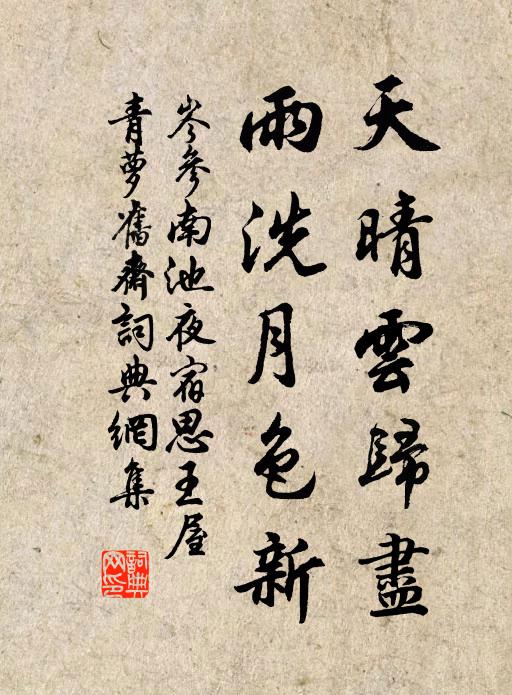 天晴雲歸盡
雨洗月色新
岑參南池夜宿思王屋
青蘿舊齋詞典網集
詞典網印